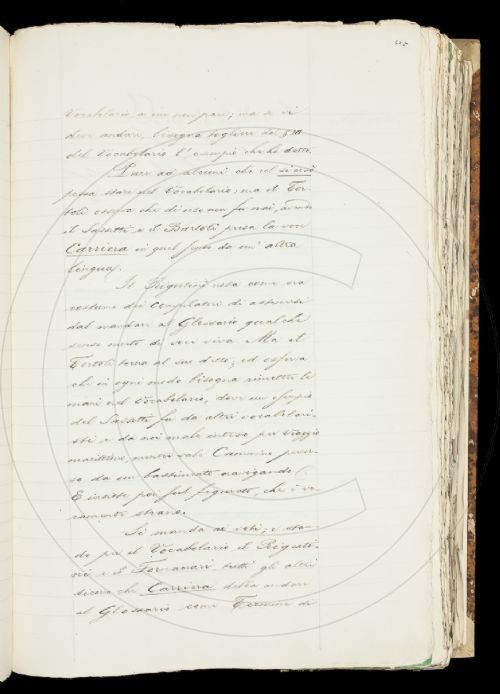 Vocabolario a me non pare; ma se vi
deve andare, bisogna togliere dal § III
del Vocabolario l'esempio che ho detto.
Pare ad alcuni che col si usò
possa stare nel Vocabolario; ma il Tor-
toli osserva che di uso non fu mai, avendo
il Sassetti e il Bartoli presa la voce
Carriera in quel senso da un'altra
lingua.
Il Rigutini nota come sia
costume dei Compilatori di astenersi
dal mandare al Glossario qualche
senso morto di voce viva. Ma il
Tortoli torna al suo detto; ed osserva
che in ogni modo bisogna rimetter le
mani nel Vocabolario, dove un esempio
del Sassetti fu da altri vocabolari-
sti e da noi male inteso per Viaggio
marittimo, mentre vale Cammino percor-
so da un bastimento navigando.
E insiste pel figurato, che è ve-
ramente strano.
Si manda ai voti; e stan-
do pel Vocabolario il Riguti-
ni e il Fornaciari tutti gli altri
dicono che Carriera debba andare
al Glossario come Termine di